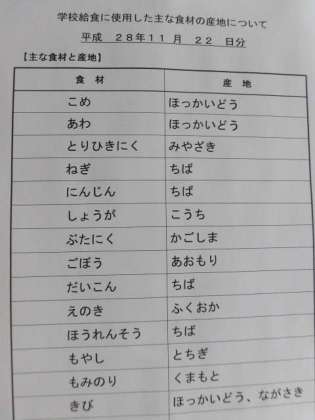 学校給食に使用した主な食材の産地について
平成 28年11月 22 日分
【主な食材と産地】
食 材 産 地
こめ ほっかいどう
あわ ほっかいどう
とりひきにく みやざき
ねぎ ちば
にんじん ちば
しょうが こうち
ぶたにく かごしま
ごぼう あおもり
だいこん ちば
えのき ふくおか
ほうれんそう ちば
もやし とちぎ
もみのり くまもと
きび ほっかいどう、ながさき